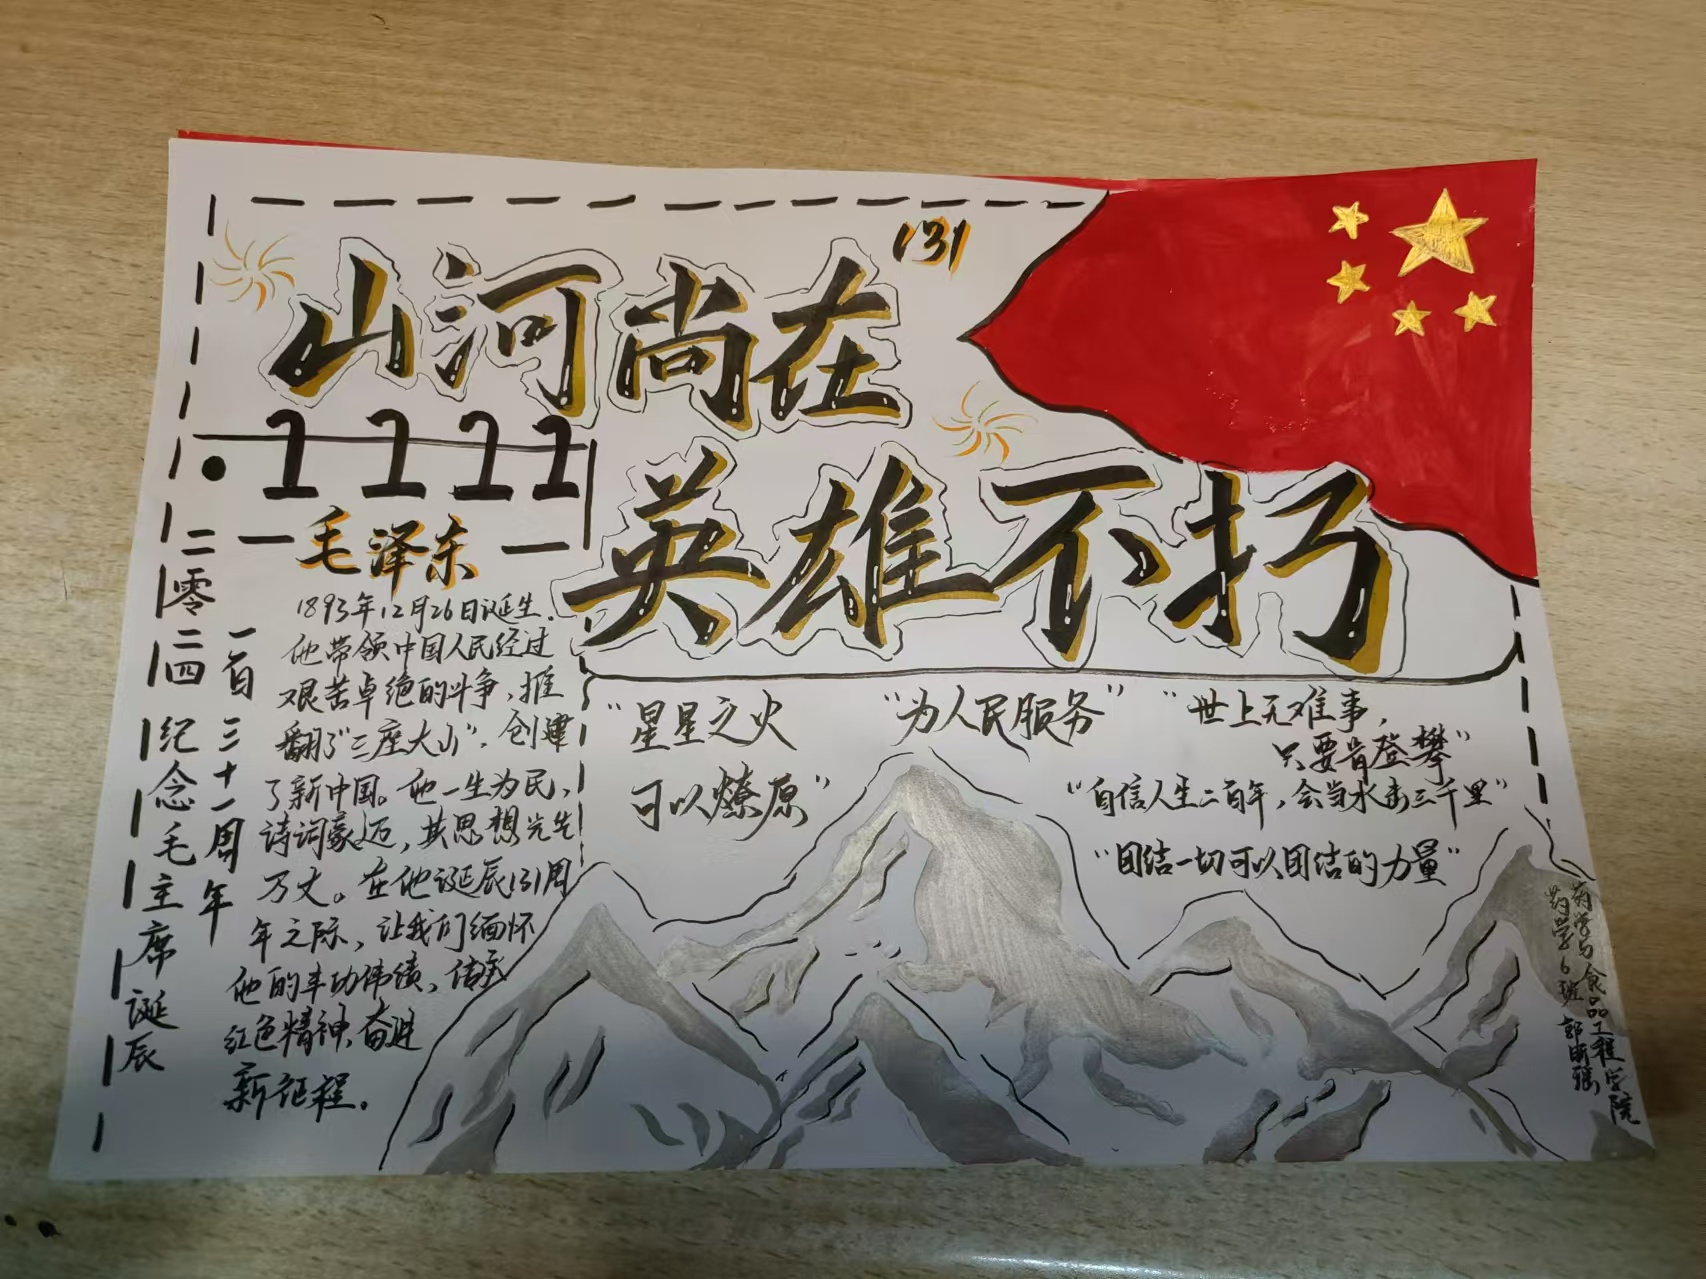 山河尚在
131
英雄不朽
.1222
毛泽东
1893年12月26日诞生.
他带领中国人民经过
艰苦卓绝的斗争,推
翻了"三座大山",创建
了新中国。他一生为民,
诗词豪迈,其思想光芒
万丈。在他诞辰131周
年之际,让我们缅怀
他的丰功伟绩、传承
红色精神、奋进
新征程.
二零二四纪念毛主席诞辰
一百三十一周年
"星星之火
可以燎原"
"为人民服务"
"世上无难事,
只要肯登攀"
"自信人生二百年,会当水击三千里"
"团结一切可以团结的力量"
药学与食品工程学院
药学6班 郭昕瑶